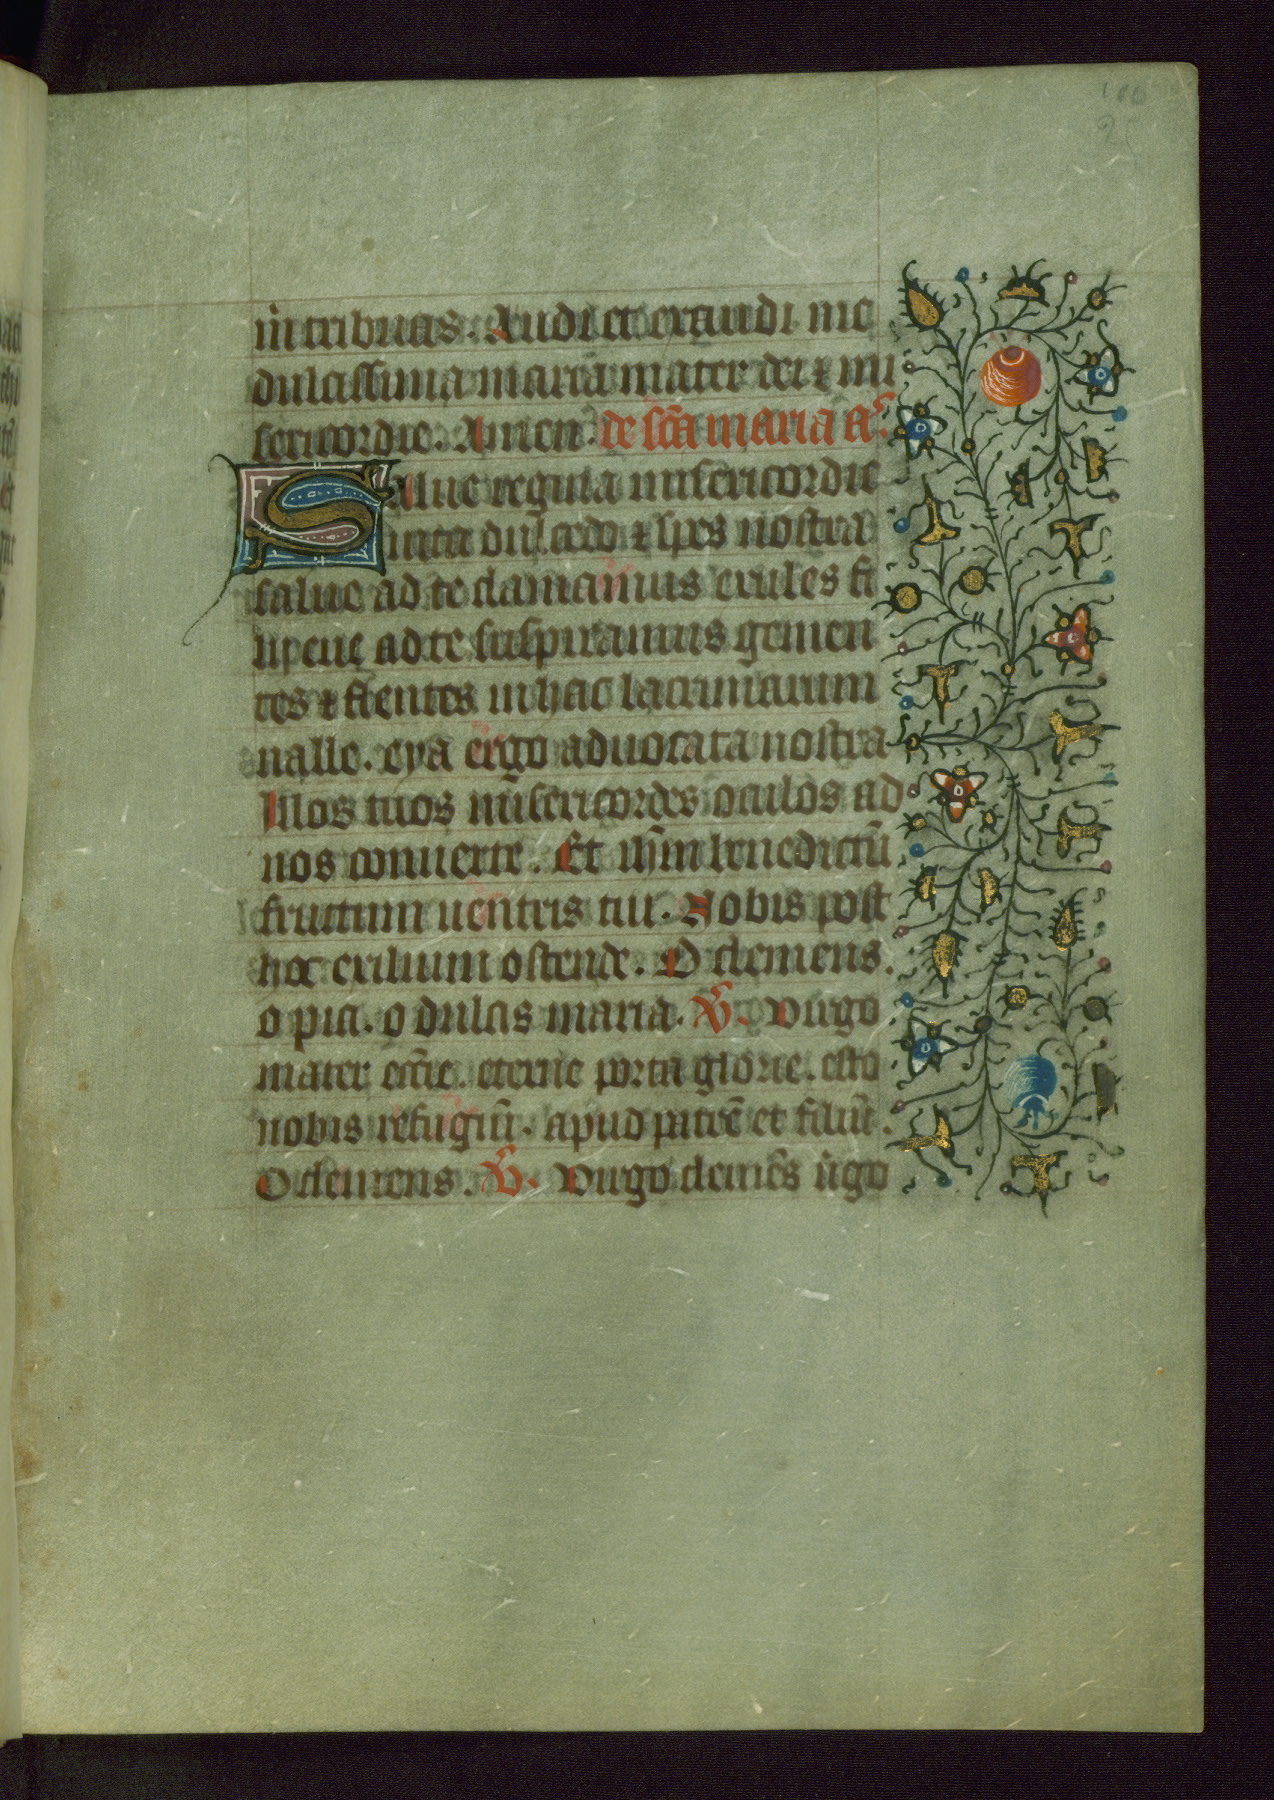 m̄ tribuas. Audi et exaudi me
dulcissima maria mater dei ⁊ mi
sericordie. Amen. de sc̄a maria a͛
Salue regina misericordie
uita dulcedo ⁊ spes nostra
salue ad te clamamus exules fi
lij eue ad te suspiramus gemen
tes ⁊ flentes in hac lacrimarum
ualle. eya ergo aduocata nostra
Illos tuos misericordes oculos ad
nos conuerte. Et ih̄m benedictū
fructum uentris tui. Nobis post
hoc exilium ostende. O clemens.
o pia. o dulcis maria. V̄. Uirgo
mater ecc̄ie. eterne porta glorie. esto
nobis refugiū. apud patrē et filiū.
O clemens. V̄. Uirgo clemēs u̇go